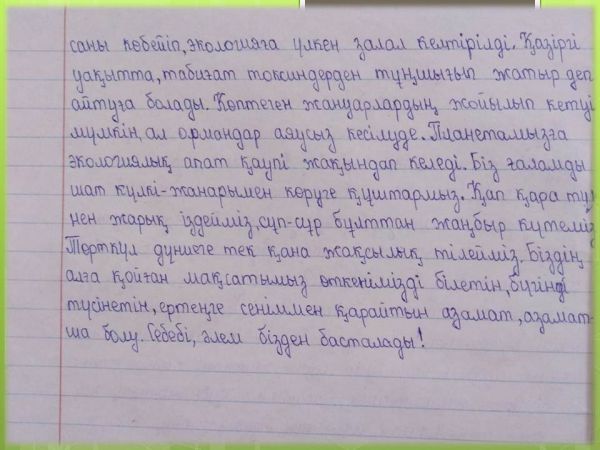 саны көбейіп, экологияға үлкен залал келтірілді. Қазіргі
уақытта, табиғат токсиндерден тұншығып жатыр деп
айтуға болады. Көптеген жануарлардың жойылып кетуі
мүмкін, ал ормандар аяусыз кесілуде. Планетамызға
экологиялық апат қаупі жақындап келеді. Біз ғаламды
шат күлкі-жанарымен көруге құштармыз. Қап қара түн
нен жарық іздейміз, сұп-сұр бұлттан жаңбыр күтеміз
Төрткүл дүниеге тек қана жақсылық тілейміз. Біздің
алға қойған мақсатымыз өткенімізді білетін, бүгінді
түсінетін, ертеңге сеніммен қарайтын азамат, азамат-
ша болу. Себебі, әлем бізден басталады!